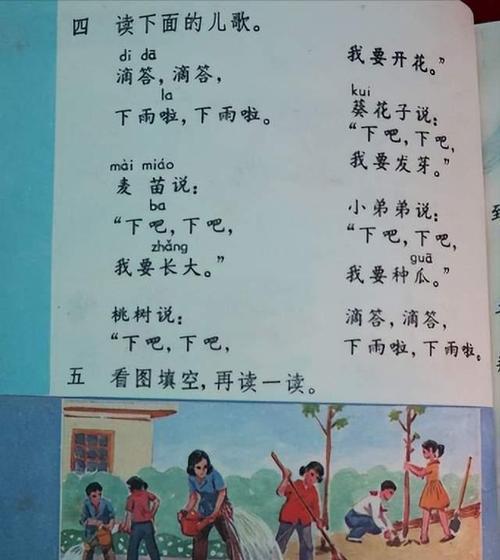 四 读下面的儿歌。
di dā
滴答，滴答，
la
下雨啦，下雨啦。
mài miáo
麦苗说：
ba
“下吧，下吧，
zhǎng
我要长大。”
桃树说：
“下吧，下吧，
我要开花。”
kuí
葵花子说：
“下吧，下吧，
我要发芽。”
小弟弟说：
“下吧，下吧，
guā
我要种瓜。”
滴答，滴答，
下雨啦，下雨啦。
五 看图填空，再读一读。
到